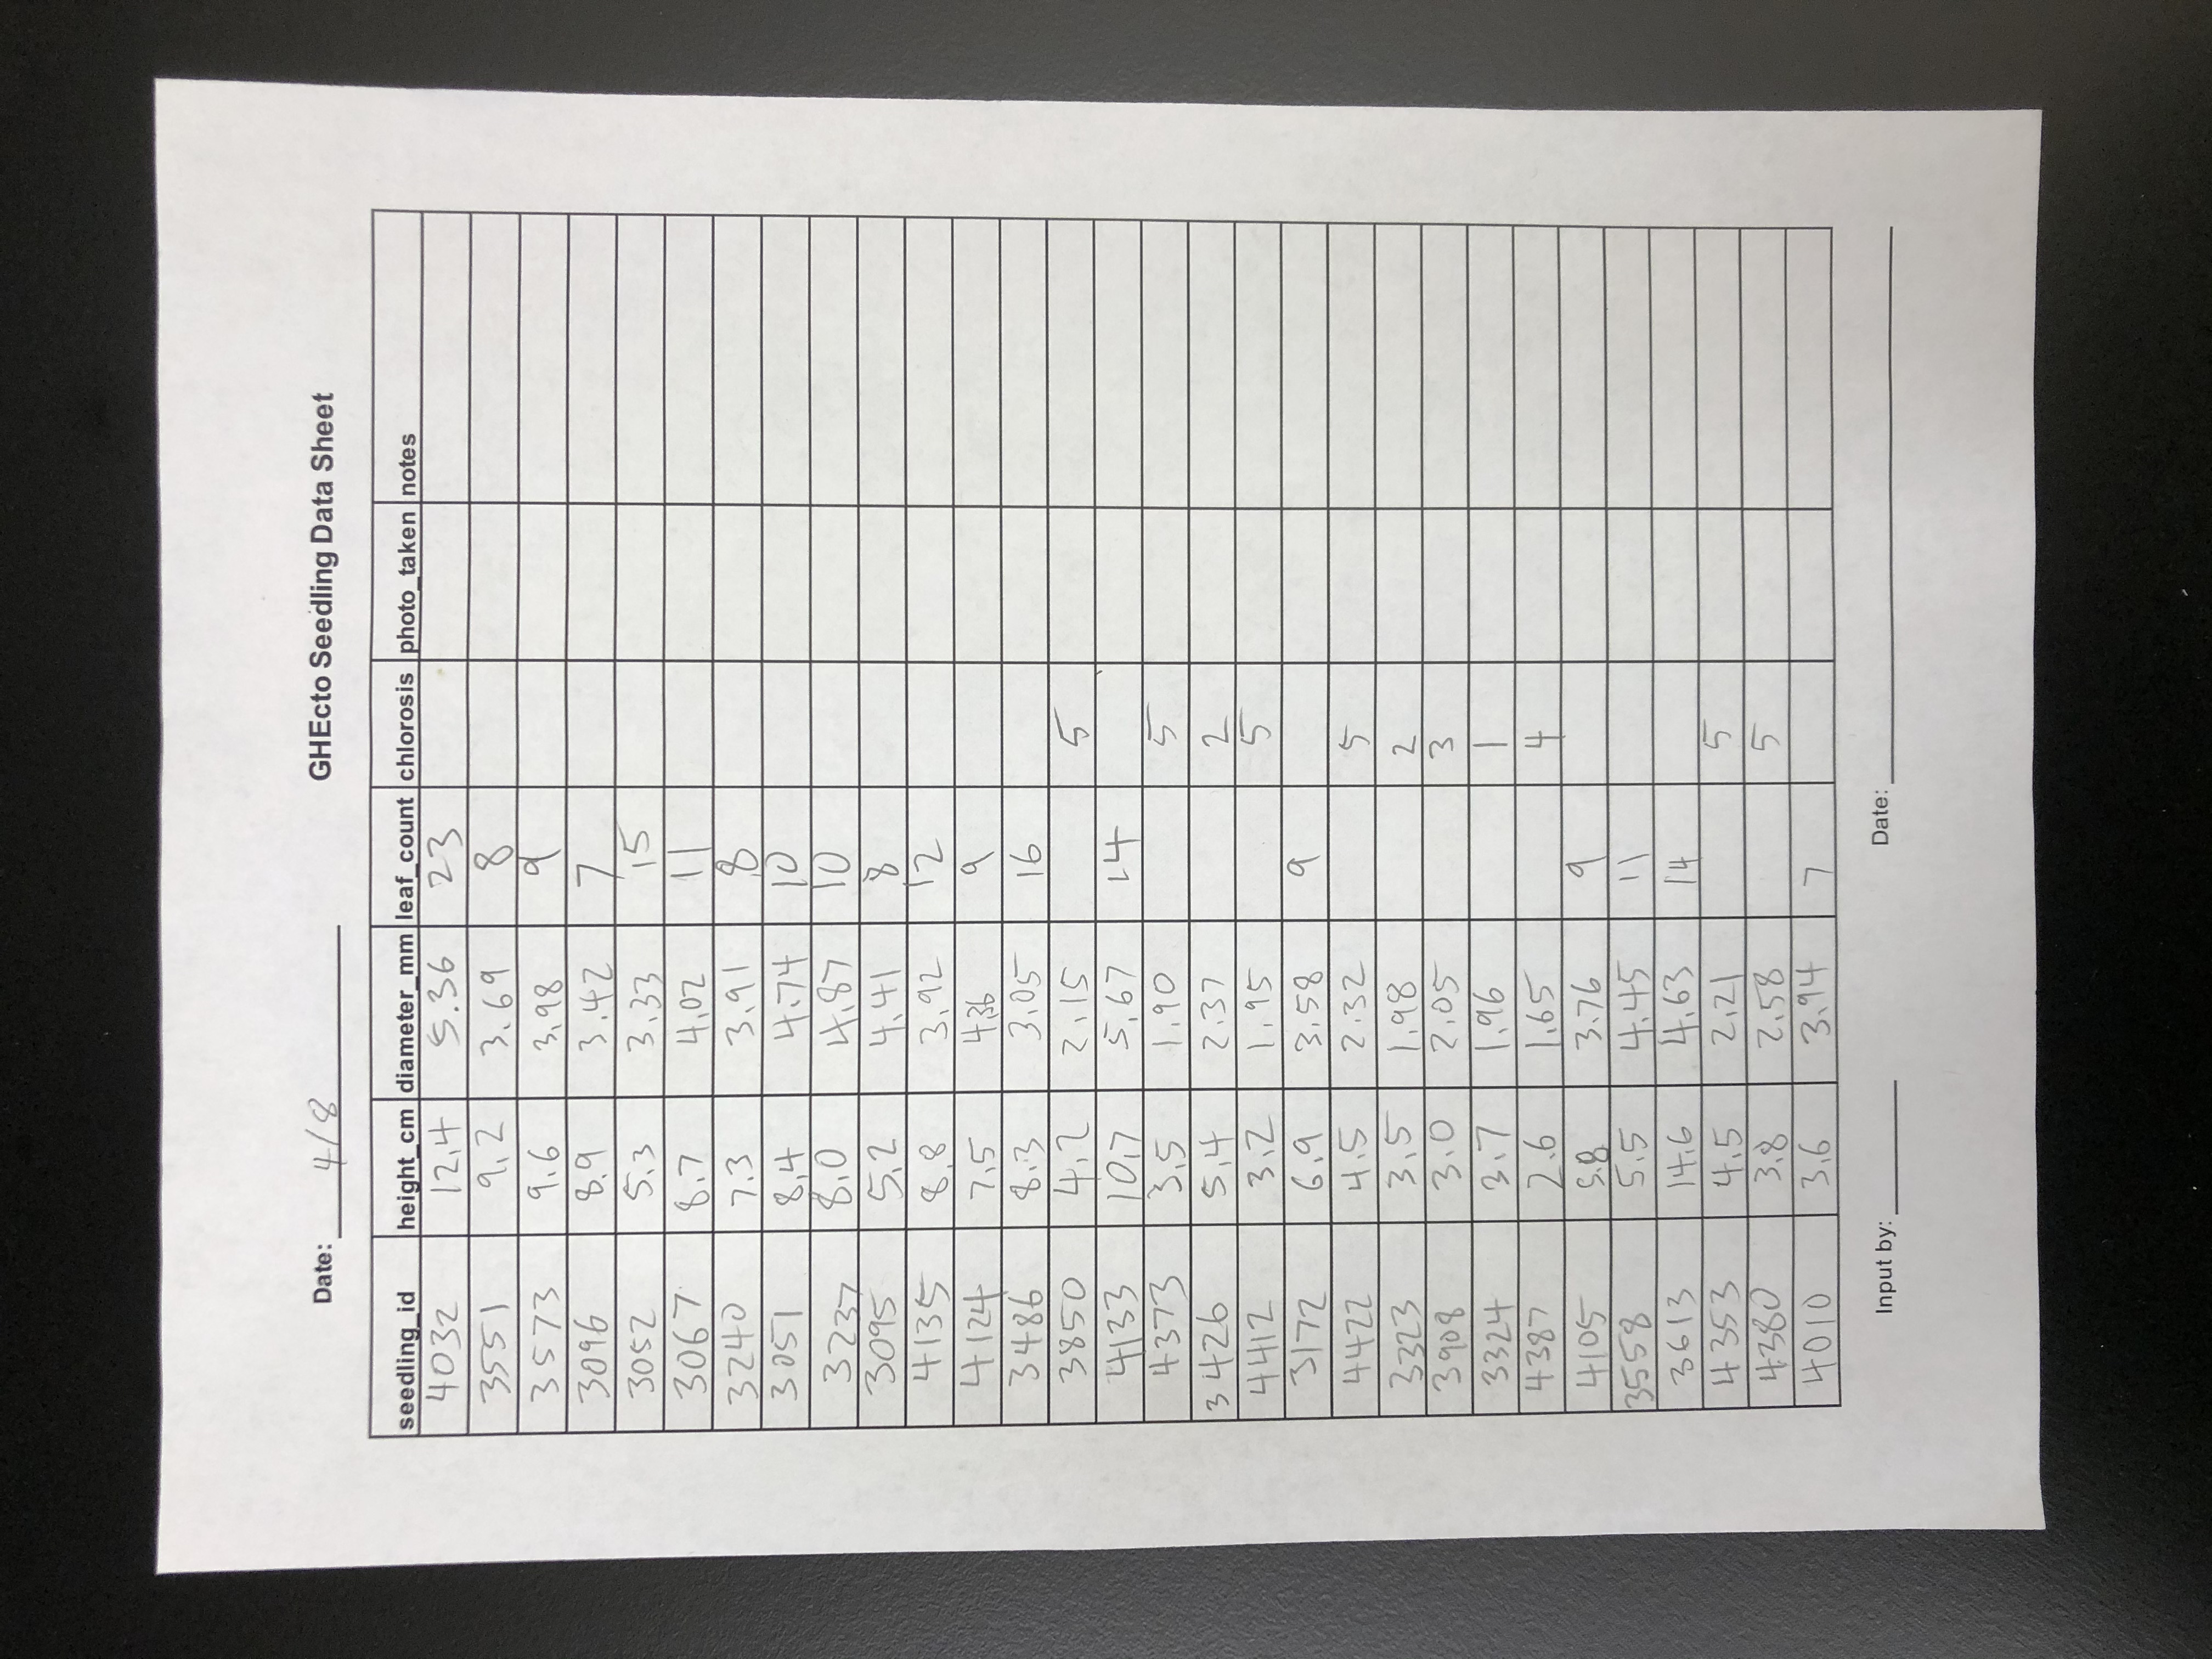 Date: 4/8 GHEcto Seedling Data Sheet
seedling_id height_cm diameter_mm leaf_count chlorosis photo_taken notes
4032 12.4 5.36 23
3551 9.2 3.69 8
3573 9.6 3.98 9
3096 8.9 3.42 7
3052 5.3 3.33 15
3067 8.7 4.02 11
3240 7.3 3.91 8
3051 8.4 4.74 10
3237 8.0 4.87 10
3095 5.2 4.41 8
4135 8.8 3.92 12
4124 7.5 4.36 9
3486 8.3 3.05 16
3850 4.2 2.15 5
4133 10.7 5.67 14
4373 3.5 1.90 5
3426 5.4 2.37 2
4412 3.2 1.95 5
3172 6.9 3.58 9
4422 4.5 2.32 5
3323 3.5 1.98 2
3908 3.0 2.05 3
3324 3.7 1.96 1
4387 2.6 1.65 4
4105 5.8 3.76 9
3558 5.5 4.45 11
3613 14.6 4.63 14
4353 4.5 2.21 5
4380 3.8 2.58 5
4010 3.6 3.94 7
Input by: Date: